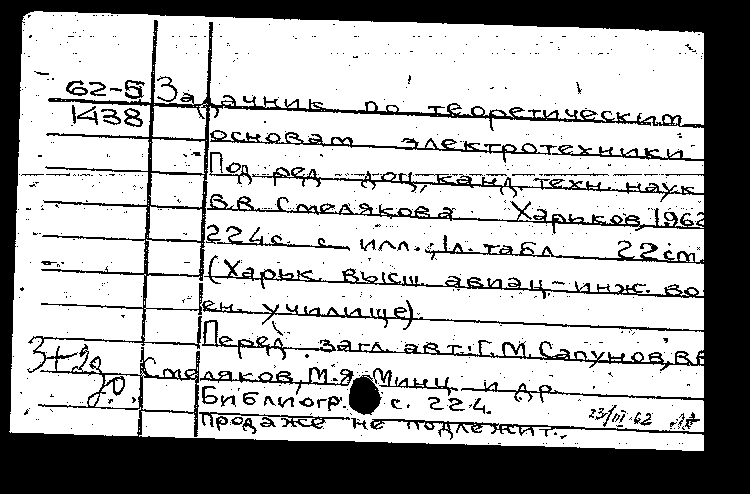 62-5 Задачник по теоретическим
1438
основам электротехники
Под ред. доц., канд. техн. наук
В.В. Смелякова Харьков, 1962
224 с. с илл.; 1 л. табл. 22 см.
(Харьк. высш. авиац.-инж. во
ен. училище).
Перед загл. авт.: Г.М. Сапунов, В.В.
Смеляков, М.Я. Минц и др.
3+2д
Библиогр. с. 224.
23/III-62
Продаже не подлежит.